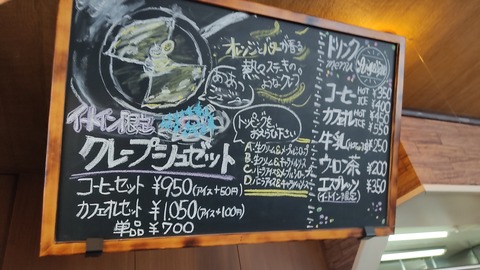 オレンジとバターが香る
熱々ステーキの
ようなクレープ
イートイン限定
クレープシュゼット
コーヒーセット ¥950(アイス+50円)
カフェオレセット ¥1050(アイス+100円)
単品 ¥700
トッピングを
お選び下さい
A.生クリーム&メープルシロップ
B.生クリーム&キャラメルソース
C.バニラアイス&メープルシロップ
D.バニラアイス&キャラメルソース
ドリンク
menu
コーヒー HOT ¥350
ICE ¥400
カフェオレ HOT ¥450
ICE ¥550
牛乳 ¥250
ウーロン茶 ¥200
エスプレッソ ¥350
(イートイン限定)